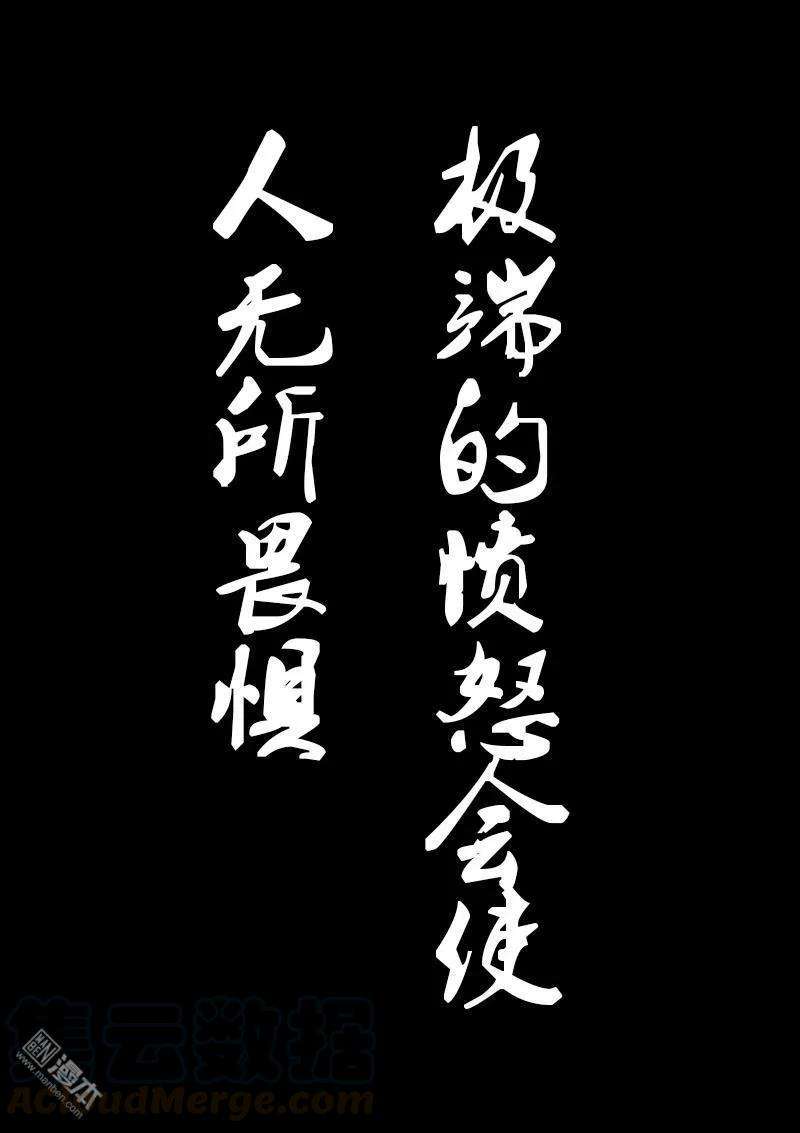 极端的愤怒会使
人无所畏惧
集云数据
AcloudMerge.com
MANBEN
漫本
www.manben.com